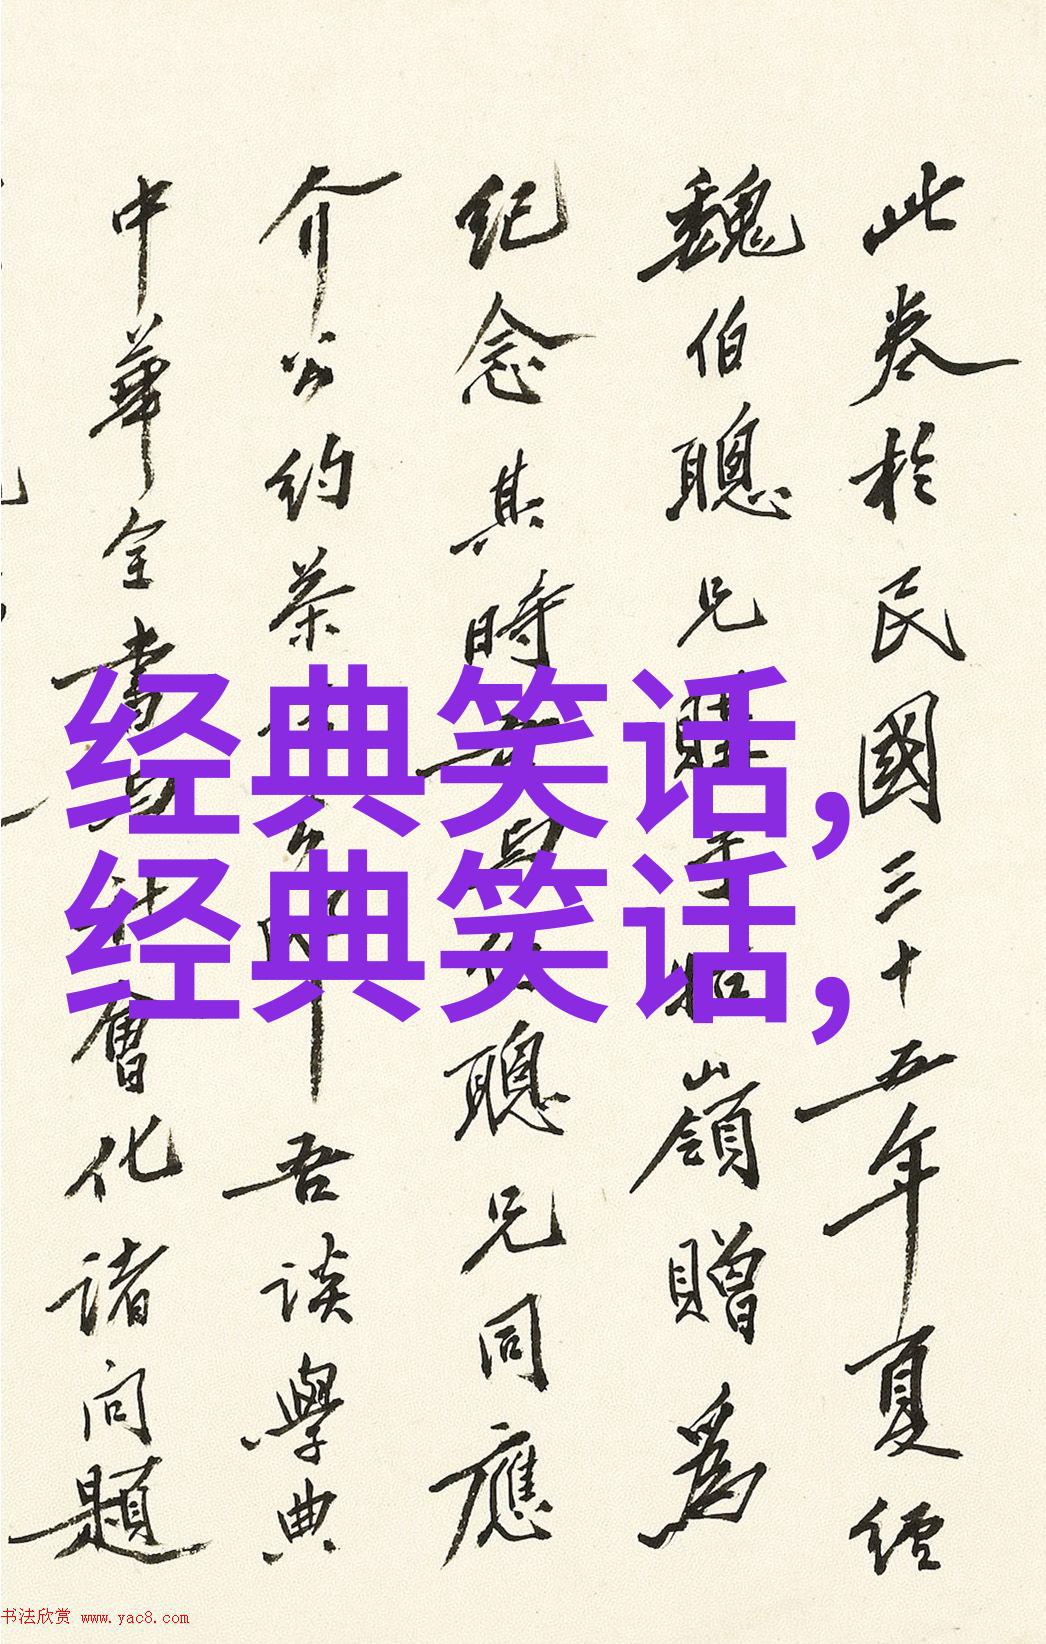 此卷於民國三十五年夏經
魏伯聰兄 牯嶺贈為
紀念其時 聰兄同應
介公約茶 吾談學典
中華全書 會化諸問題
经典笑话,
经典笑话,
书法欣赏 www.yac8.com